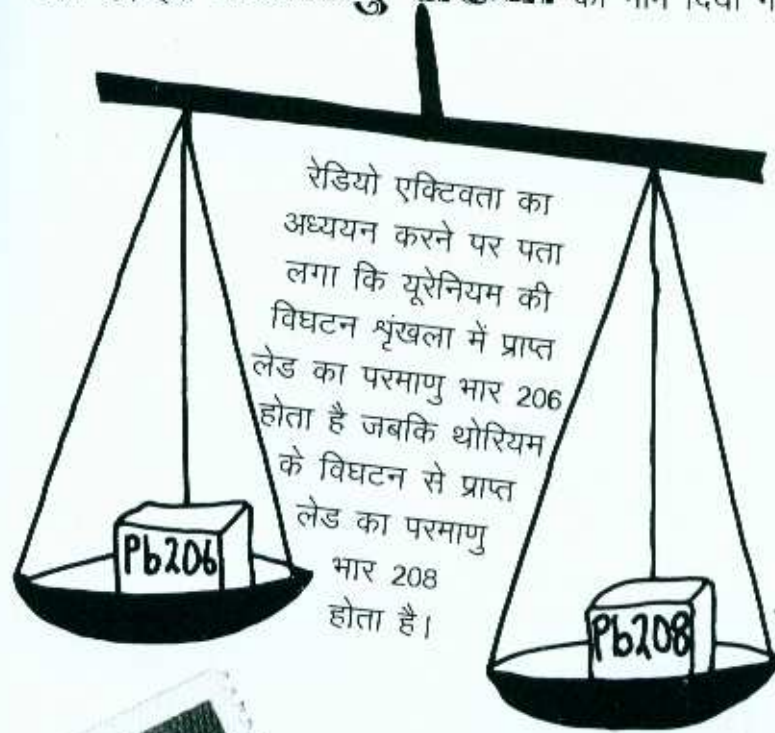 का नाम दिया
रेडियो एक्टिवता का
अध्ययन करने पर पता
लगा कि यूरेनियम की
विघटन शृंखला में प्राप्त
लेड का परमाणु भार 206
होता है जबकि थोरियम
के विघटन से प्राप्त
लेड का परमाणु
भार 208
होता है।
Pb206
Pb208